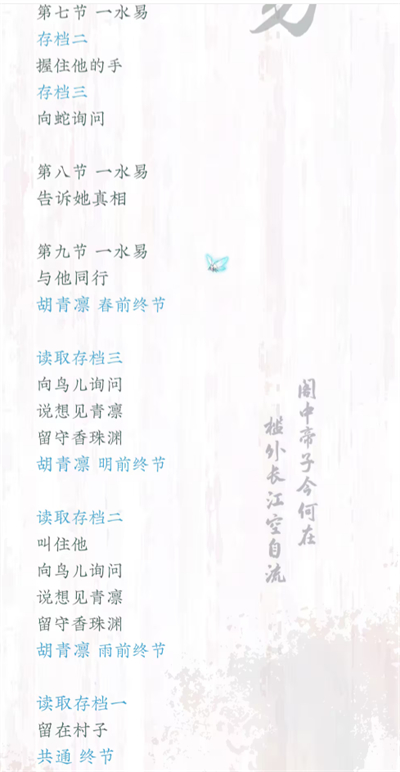 易
第七节 一水易
存档二
握住他的手
存档三
向蛇询问
第八节 一水易
告诉她真相
第九节 一水易
与他同行
胡青凛 春前终节
读取存档三
向鸟儿询问
说想见青凛
留守香珠渊
胡青凛 明前终节
读取存档二
叫住他
向鸟儿询问
说想见青凛
留守香珠渊
胡青凛 雨前终节
读取存档一
留在村子
共通 终节
阁中帝子今何在
槛外长江空自流